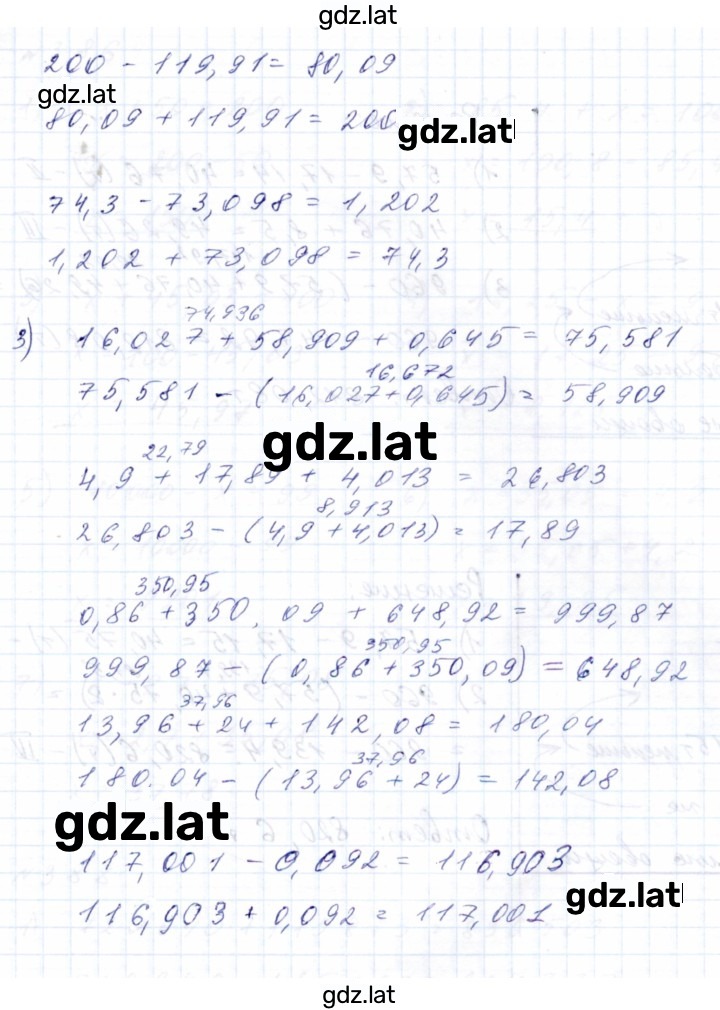 gdz.lat
200 - 119,91 = 80,09
gdz.lat
80,09 + 119,91 = 200
gdz.lat
74,3 - 73,098 = 1,202
1,202 + 73,098 = 74,3
74,936
3) 16,027 + 58,909 + 0,645 = 75,581
16,672
75,581 - (16,027+0,645) = 58,909
gdz.lat
22,79
4,9 + 17,89 + 4,013 = 26,803
8,913
26,803 - (4,9+4,013) = 17,89
350,95
0,86 + 350,09 + 648,92 = 999,87
350,95
999,87 - (0,86 + 350,09) = 648,92
37,96
13,96 + 24 + 142,08 = 180,04
37,96
180.04 - (13,96 + 24) = 142,08
gdz.lat
117,001 - 0,092 = 116,903
gdz.lat
116,903 + 0,092 = 117,001
gdz.lat